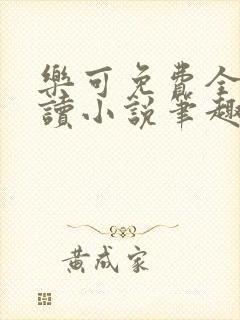 樂可免費全
讀小說筆趣
黃成家